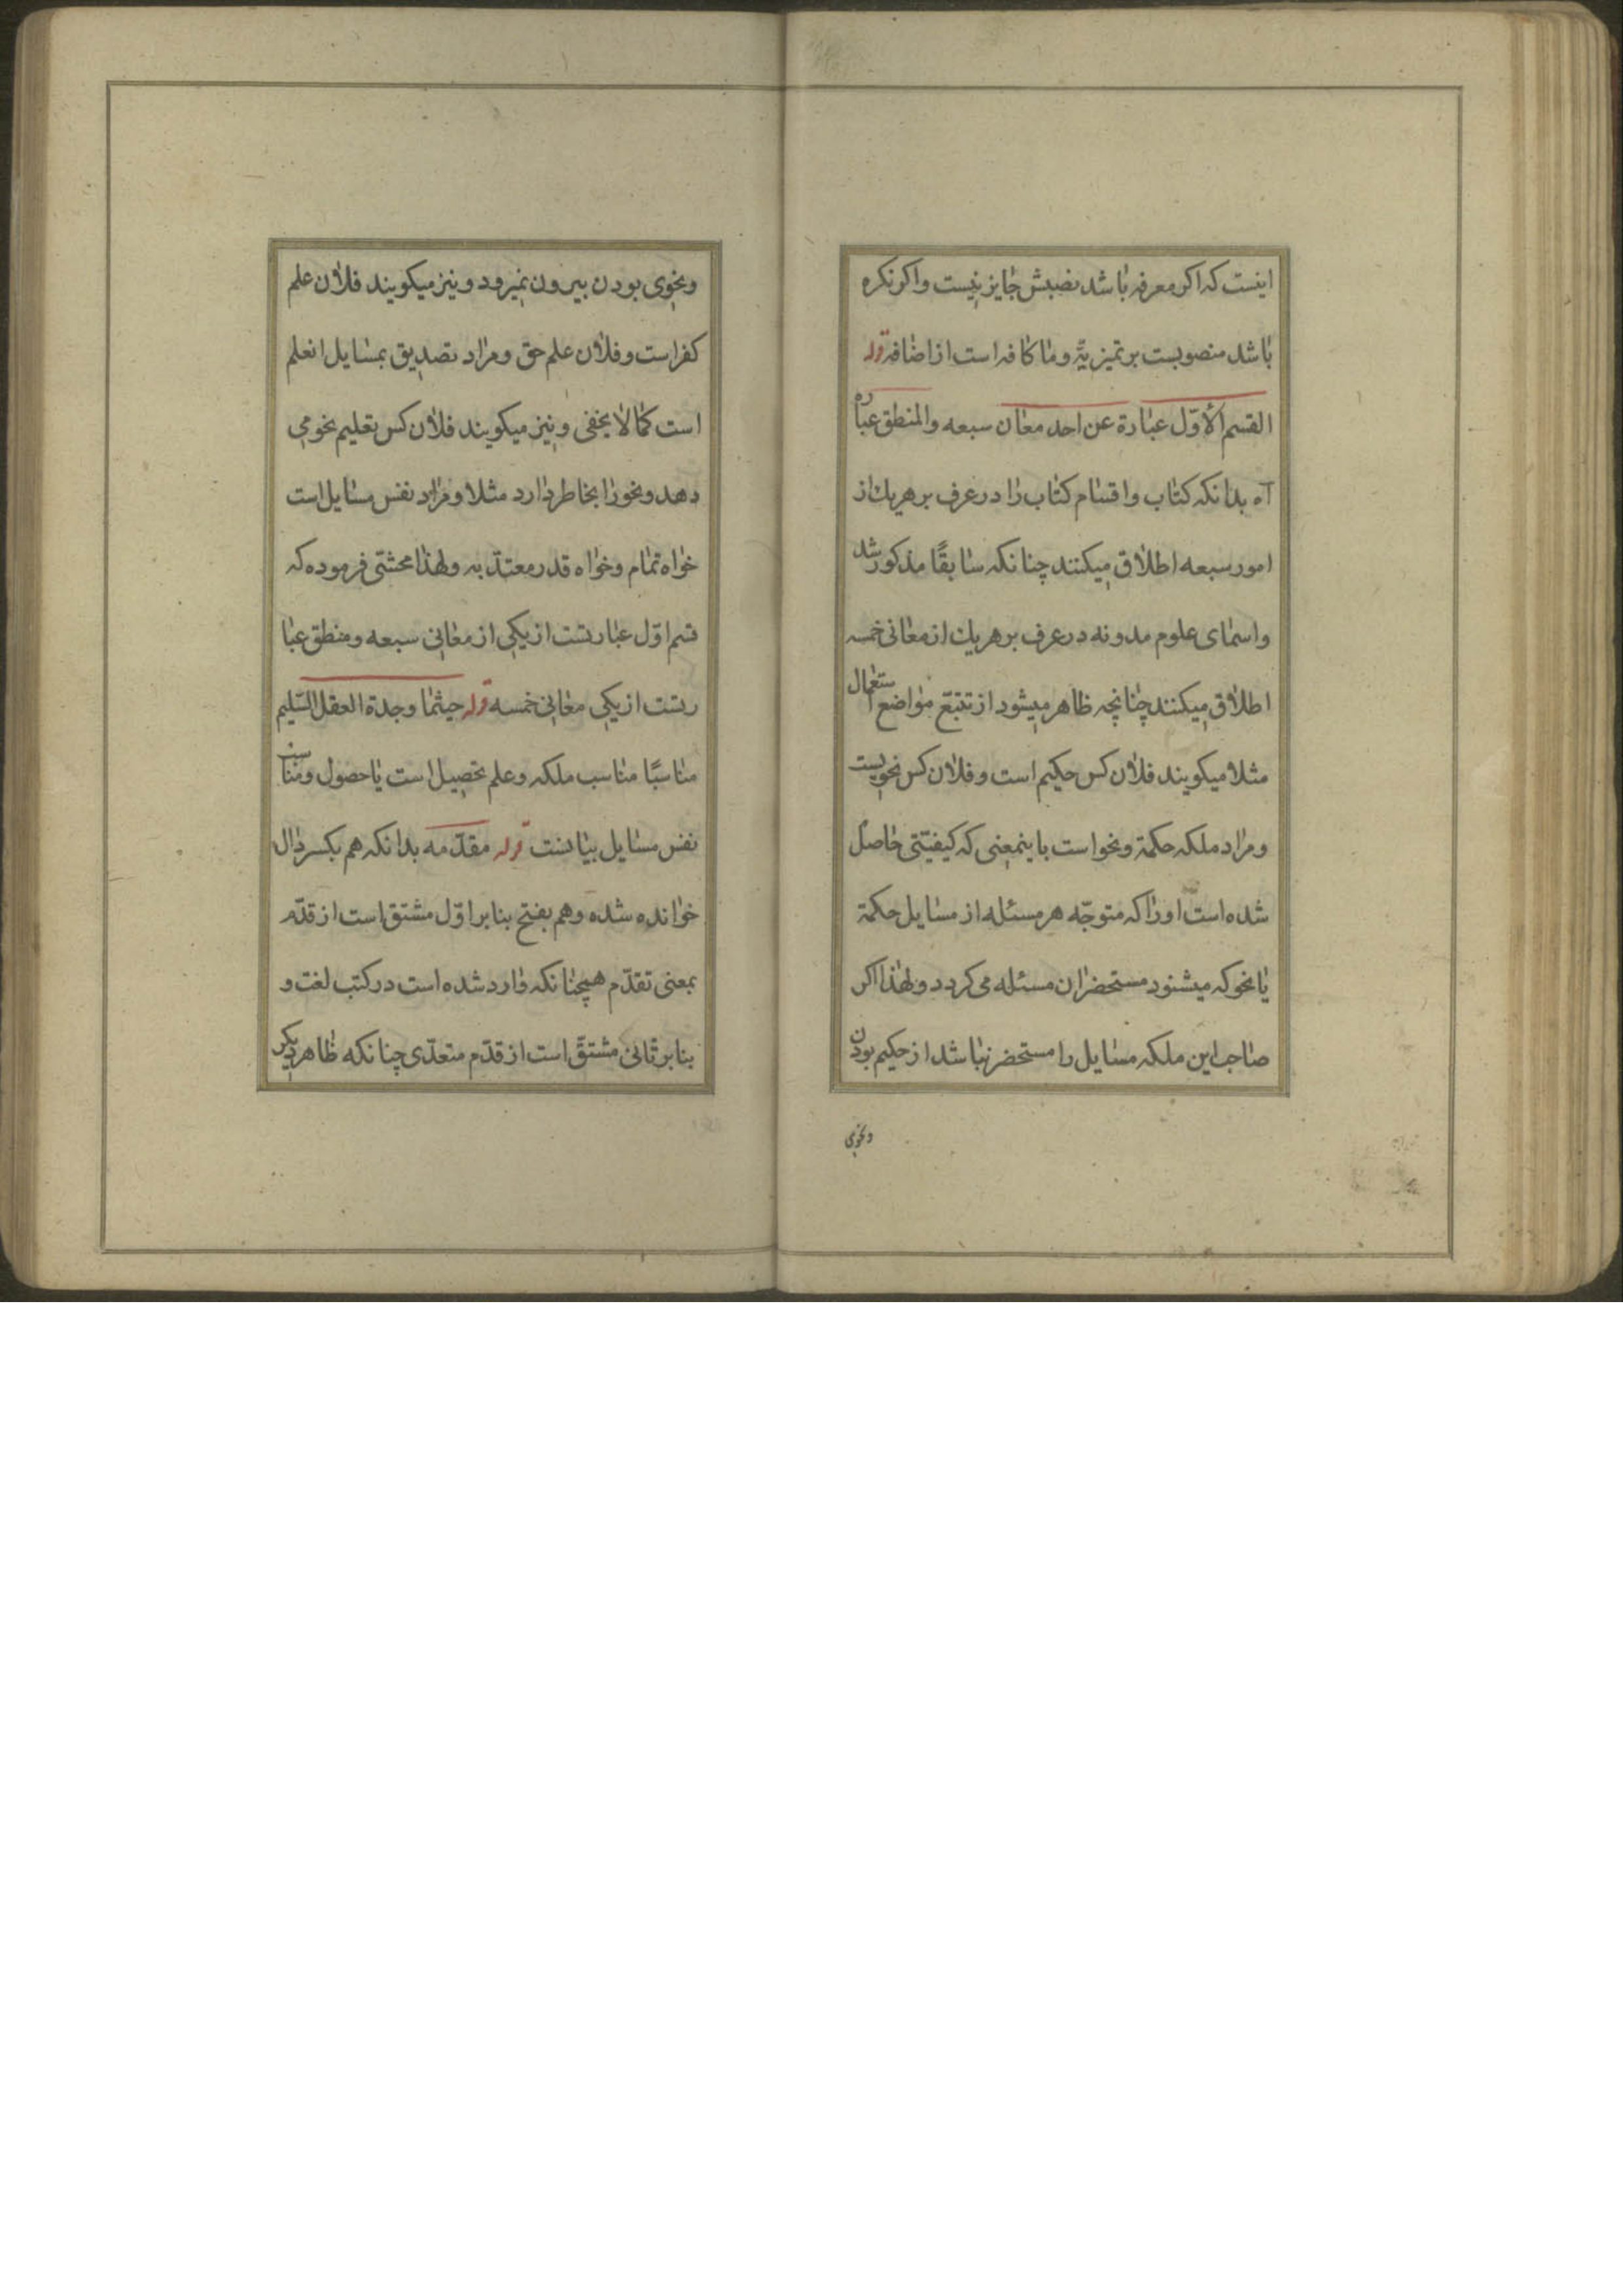 اینست که اکر معرفه باشد نصبش جایز نیست واکر نکره
باشد منصوبست بر تمیزیّة وما کافه است از اضافه قوله
القسم الأوّل عبارة عن احد معان سبعه والمنطق عباره
آه بدانکه کتاب واقسام کتاب را در عرف بر هریك از
امور سبعه اطلاق میکنند چنانکه سابقًا مذکور شد
واسمای علوم مدونه در عرف بر هریك از معانی خمسه
اطلاق میکنند چنانچه ظاهر میشود از تتبّع مواضع استعمال
مثلا میکویند فلان کس حکیم است وفلان کس نحویست
ومراد ملکه حکمة ونحو است باینمعنی که کیفیّتی حاصل
شده است اورا که متوجّه هر مسئله از مسایل حکمة
یا نحو که میشود مستحضر ان مسئله می کردد ولهذا اکر
صاحب این ملکه مسایل را مستحضر نباشد از حکیم بودن
ونحوی
ونحوی بودن بیرون نمیرود ونیز میکویند فلان علم
کفر است وفلان علم حق ومراد تصدیق بمسایل انعلم
است کما لا یخفی ونیز میکویند فلان کس تعلیم نحو می
دهد ونحو را بخاطر دارد مثلا ومراد نفس مسایل است
خواه تمام وخواه قدر معتدّ به ولهذا محشّی فرموده که
قسم اوّل عبارتست از یکی از معانی سبعه ومنطق عبا
رتست از یکی معانی خمسه قوله حیثما وجدة العقل السّلیم
مناسبًا مناسب ملکه وعلم تحصیل است یا حصول ومناسب
نفس مسایل بیانست قوله مقدّمه بدانکه هم بکسر دال
خوانده شده وهم بفتح بنابر اوّل مشتق است از قدّم
بمعنی تقدّم همچنانکه وارد شده است در کتب لغت و
بنابر ثانی مشتقّ است از قدّم متعدّی چنانکه ظاهر دیکر